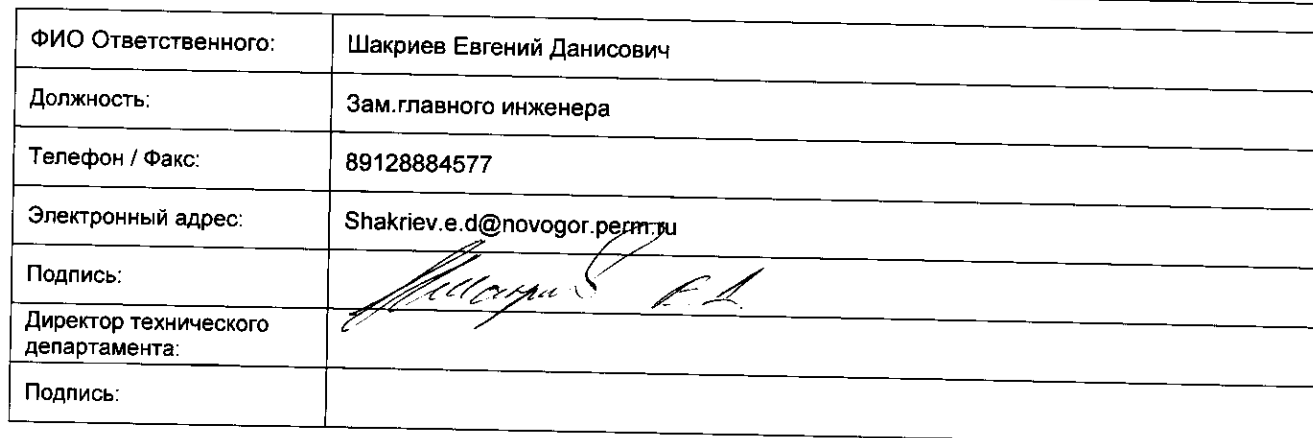 ФИО Ответственного: Шакриев Евгений Данисович
Должность: Зам.главного инженера
Телефон / Факс: 89128884577
Электронный адрес: Shakriev.e.d@novogor.perm.ru
Подпись: Е.Д.
Директор технического
департамента:
Подпись: